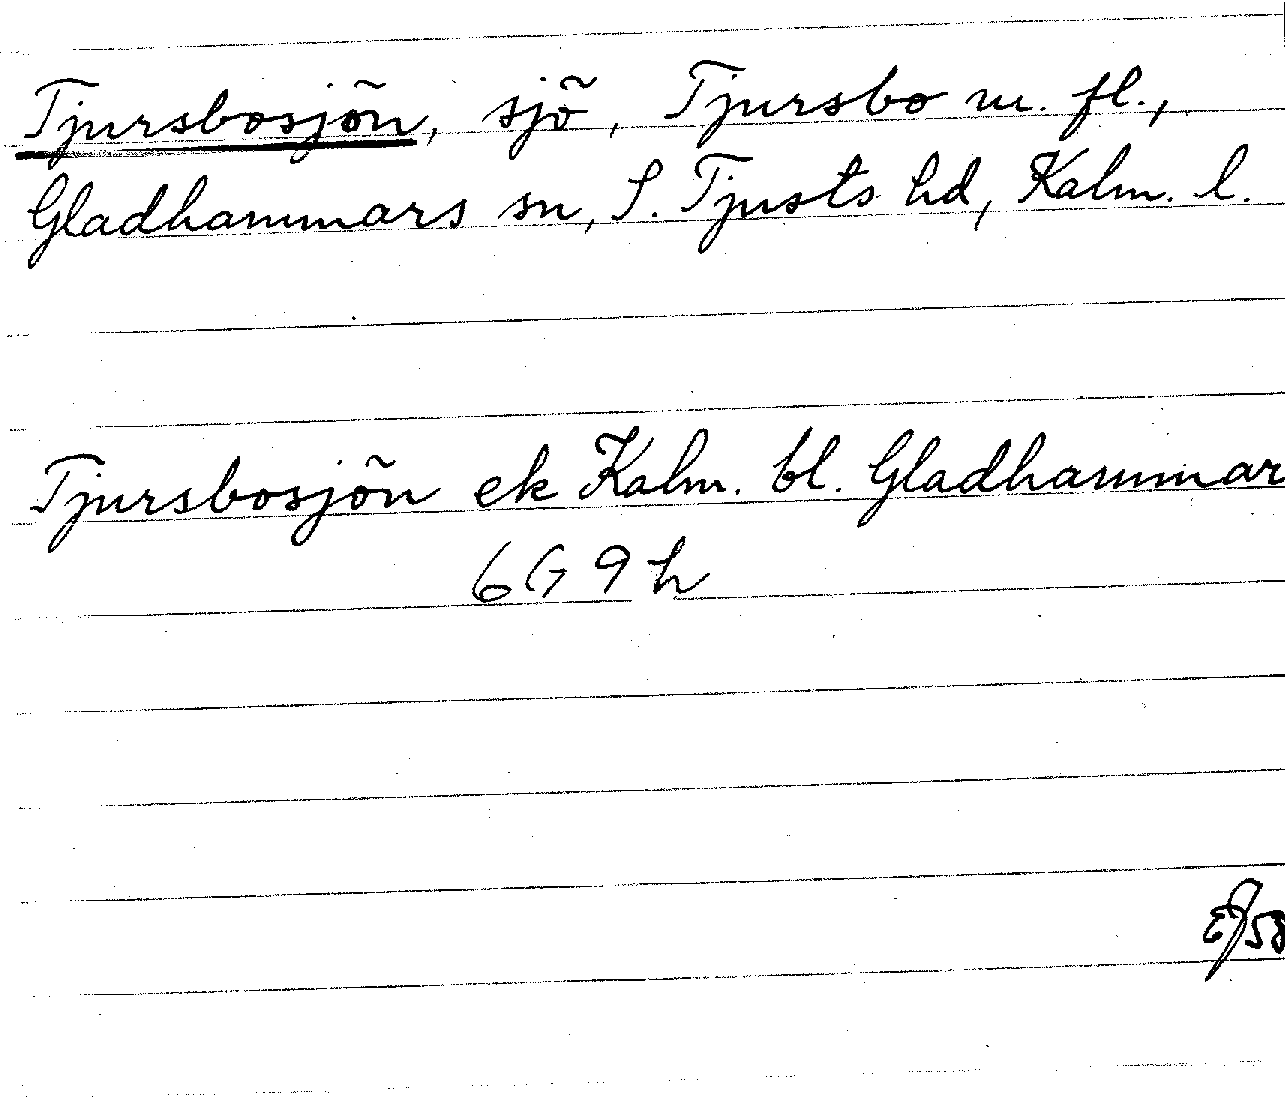 Tjursbosjön, sjö, Tjursbo m. fl.,
Gladhammars sn, S. Tjusts hd, Kalm. l.
Tjursbosjön ek Kalm. bl. Gladhammar
6G 9h
EJ58